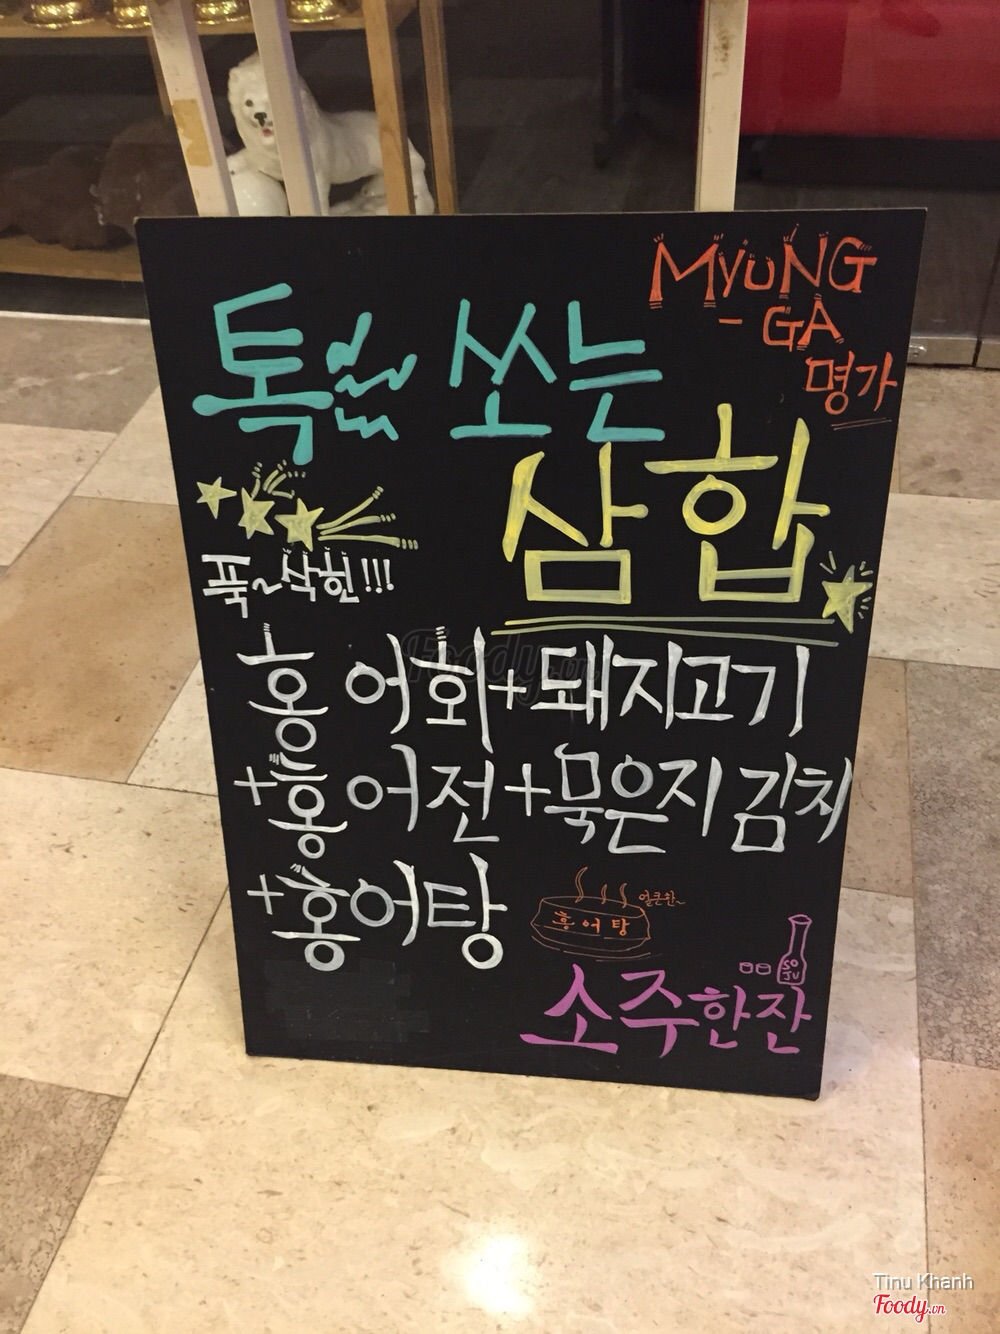 MYUNG
- GA
명가
톡 쏘는
삼합
푹~삭힌!!!
홍어회+돼지고기
+홍어전+묵은지김치
+홍어탕
얼큰한~
홍어탕
SO
JU
소주한잔
Foody.vn
Tinu Khanh
Foody.vn